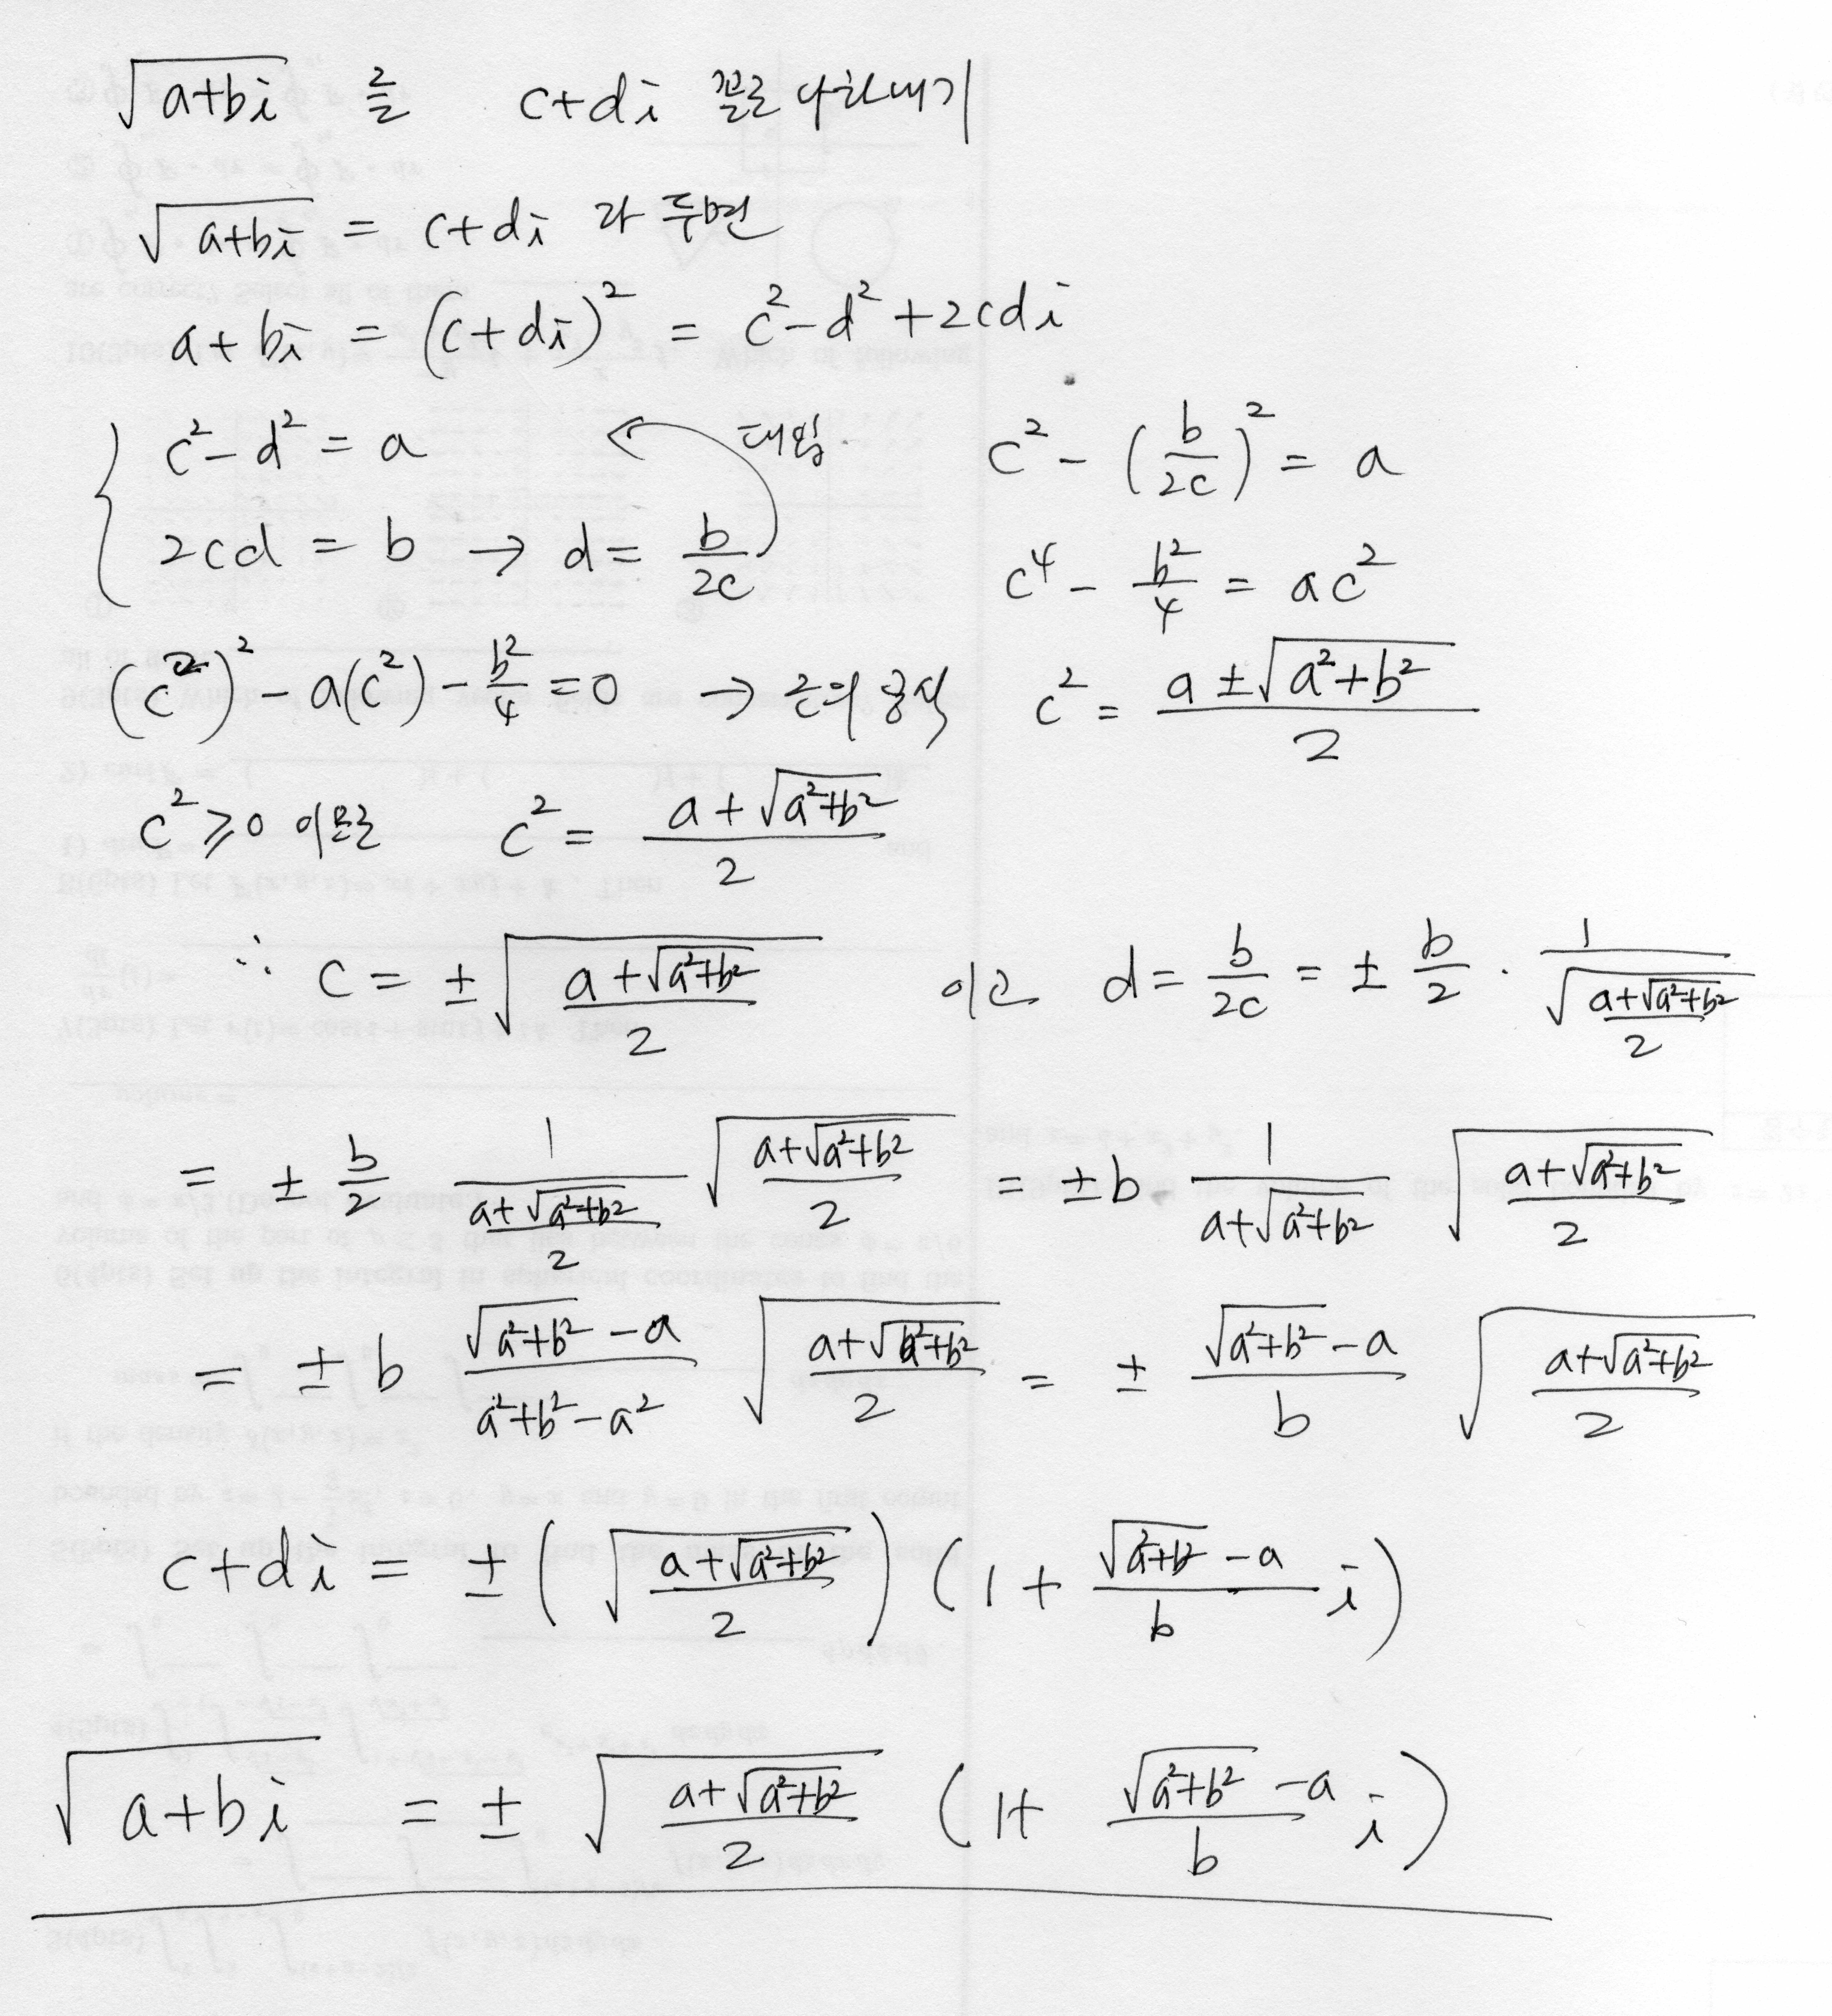 √(a+bi) 를 c+di 꼴로 나타내기
√(a+bi) = c+di 라 두면
a+bi = (c+di)² = c²-d²+2cdi
c²-d² = a 대입. c² - (b/2c)² = a
2cd = b → d = b/2c c⁴ - b²/4 = ac²
(c²)² - a(c²) - b²/4 = 0 → 근의 공식 c² = (a±√(a²+b²))/2
c² ≥ 0 이므로 c² = (a+√(a²+b²))/2
∴ c = ±√((a+√(a²+b²))/2) 이고 d = b/2c = ± b/2 · 1/√((a+√(a²+b²))/2)
= ± b/2 1/((a+√(a²+b²))/2) √((a+√(a²+b²))/2) = ±b 1/(a+√(a²+b²)) √((a+√(a²+b²))/2)
= ±b (√(a²+b²)-a)/(a²+b²-a²) √((a+√(a²+b²))/2) = ± (√(a²+b²)-a)/b √((a+√(a²+b²))/2)
c+di = ±(√((a+√(a²+b²))/2))(1+(√(a²+b²)-a)/b i)
√(a+bi) = ±√((a+√(a²+b²))/2) (1+(√(a²+b²)-a)/b i)